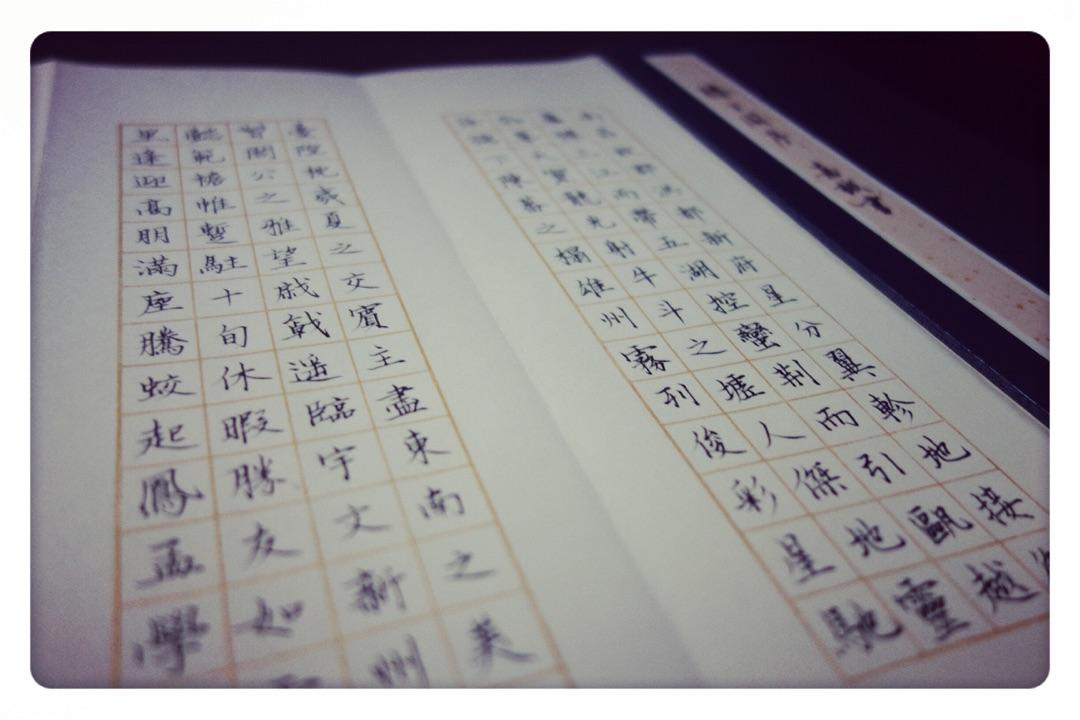 南昌故郡洪都新府星分翼軫地接
廬襟三江而帶五湖控蠻荊而引甌越
物華天寶龍光射牛斗之墟人傑地靈
徐孺下陳蕃之榻雄州霧列俊彩星馳
臺隍枕夷夏之交賓主盡東南之美
督閻公之雅望棨戟遙臨宇文新州
懿範襜帷暫駐十旬休暇勝友如雲
里逢迎高朋滿座騰蛟起鳳孟學